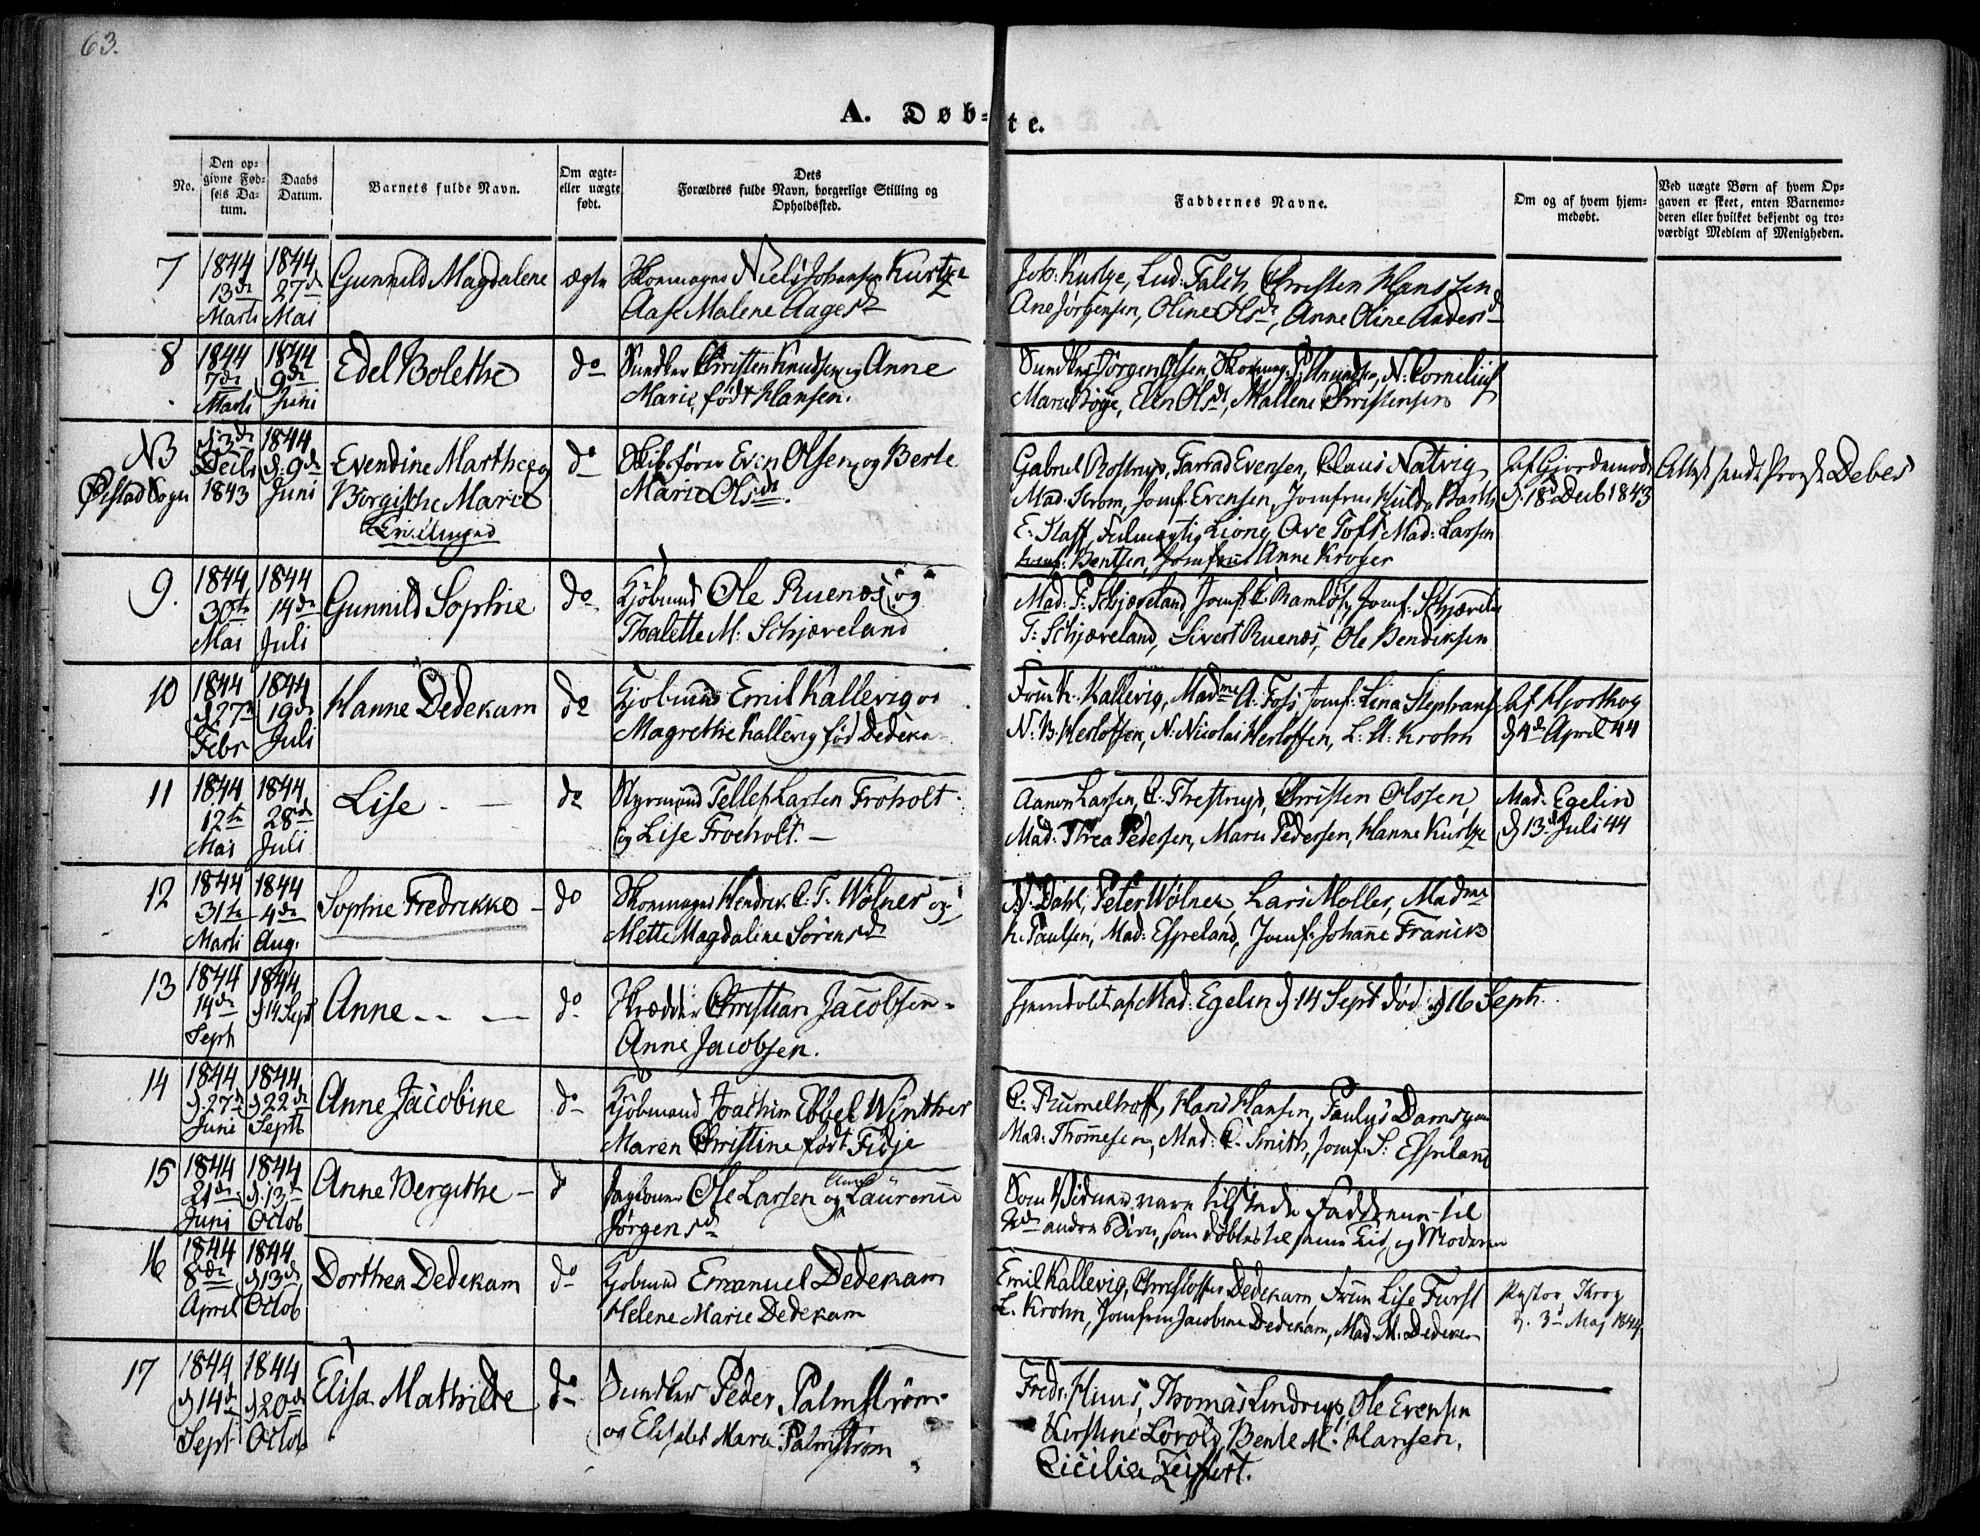 63.
A. Døb-
te.
No.
Den op-
givne Fød-
sels Da-
tum.
Daabs
Datum.
Barnets fulde Navn.
Om ægte-
eller uægte
født.
Dets
Forældres fulde Navn, borgerlige Stilling og
Opholdssted.
Faddernes Navne.
Om og af hvem hjem-
medøbt.
Ved uægte Børn af hvem Op-
gaven er skeet, enten Barnemo-
deren eller hvilket bekjendt og tro-
værdigt Medlem af Menigheden.
7
1844
13de
Marti
1844
27de
Mai
Gunnild Magdalene
ægte
Skomager Niels Johansen Kurtze
Aase Malene Aagesd
Joh: Kurtze, Lud: Falch, Christen Hanssen
Ane Jørgensen, Oline Olsd, Anne Oline Andersd
8
1844
7de
Marti
1844
9de
Juni
Edel Bolethe
do
Christen Knudsen og Anne
Marie, født Hansen.
Jørgen Olsen, N. Cornelius
Marie Bøye, Elen Olsd, Mallene Christensen
N3
Øiestad Sogn
d. 3de
Decbr
1843
1844
d. 9de
Juni
Evendine Marthea og
Borgithe Marie
do
Skibsfører Even Olsen og Berte
Marie Olsd.
Gabriel Rostrup, Tarrad Evensen, Claus Natvig
Mad. Strøm, Jomf. Evensen, Jomfru Huld, Barth
E. Staff, Fulmægtig Liong, Ove Toft, Mad: Larsen
Jomf: Bentsen, Jomfru Anne Krøger
Af
d. 18de Decb 1843
Attest sendt Provst Debes
9.
1844
30te
Mai
1844
14de
Juli
Gunnild Sophie
do
Kjøbmand Ole Ruenæs og
Thalette M: Schjæveland
Mad: T: Schjæveland, Jomf. C. Ramløs, Jomf: Schjævela
T: Schjæveland, Sivert Ruenæs, Ole Bendiksen
10
1844
d. 27de
Febr
1844
19de
Juli
Hanne Dedekam
do
Kjøbmand Emil Kallevig og
Magrethe Kallevig fød Dedekam
Fru K. Kallevig, Madme A. Foss, Jomf: Lina Stephans
N. B. Herlofsen, N. Nicolai Herlofsen, L. A: Krohn
Af Hjorthog
d 4de April 44
11
1844
12te
Mai
1844
28de
Juli
Lise
do
Styrmand Tellef Larsen Froholt
og Lise Froeholt
Aanon Larsen, C. Thestrup, Christen Olssen
Mad: Threa Pedersen, Maria Pedersen, Hanne Kurtze
Mad. Egelin
d 13 Juli 44
12
1844
31te
Marti
1844
4de
Aug.
Sophie Fredrikke
do
Skomager Hendrik C. F. Wølner og
Mette Magdaline Sørensd
N. Dahl, Peter Wølner, Lars Møller, Madme
K. Paulsen, Mad: Espeland, Jomf: Johanne Francis
13
1844
14de
Sept
1844
d 14 Sept
Anne
do
Skrædder Christian Jacobsen
Anne Jacobsen.
hjemdøbt af Mad: Egelin d 14 Sept død d 16 Sept.
14
1844
d 27de
Juni
1844
d 22de
Septb
Anne Jacobine
do
Kjøbmand Joachim Ebbel Winther
Maren Christine født Fidje
C. Rumelhoff, Hans Hansen, Paulus Damsgaa
Mad: Thommesen, Mad: C. Smith, Jomf: S: Espeland
15
1844
21de
Juni
1844
d. 13de
Octob
Anne Bergithe
do
Ole Larsen og Anne Laurenie
Jørgensd
Som Vidner vare tilstede Fadderne til
de andre Børn, som døbtes til samme Tid, og Moderen
16
1844
8de
April
1844
d 13de
Octob
Dorthea Dedekam
do
Kjøbmand Emanuel Dedekam
Helene Marie Dedekam
Emil Kallevig, Christoffer Dedekam, Fru Lise Furst
L. Krohn, Jomfru Jacobine Dedekam, Mad. M. Dedekam
Pastor Krog
d. 3die Maj 1844
17
1844
d 14de
Sept
1844
d 20de
Octob
Elisa Mathilde
do
Peder Palmstrøm
og Elisabet Maria Palmstrøm
Fredr. Huus, Thomas Lindrup, Ole Evensen
Kirstine Lorold, Bente M. Hansen,
Cicilia Zeiffert.